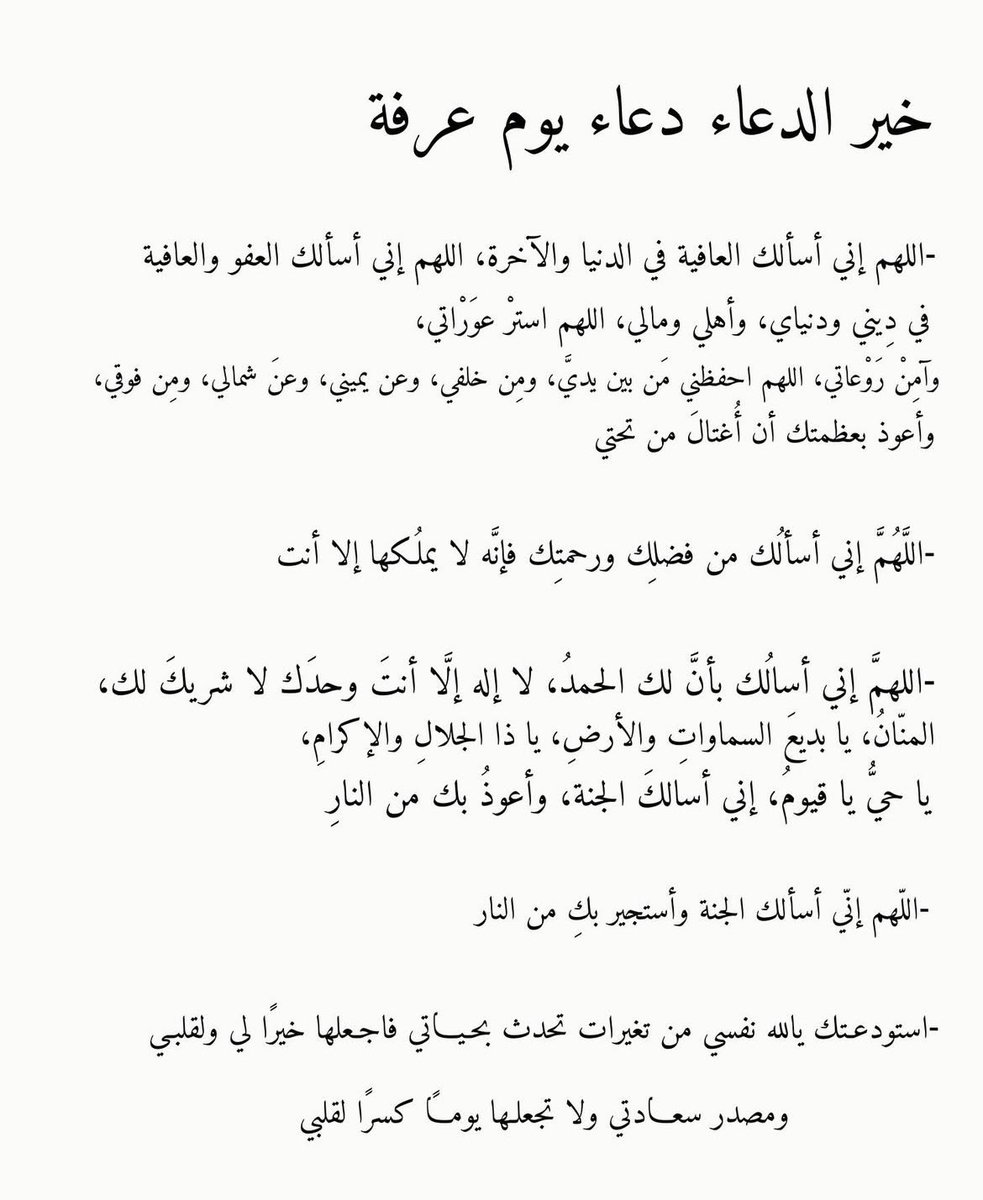 خير الدعاء دعاء يوم عرفة
-اللهم إني أسألك العافية في الدنيا والآخرة، اللهم إني أسألك العفو والعافية
في دِيني ودنياي، وأهلي ومالي، اللهم استرْ عوَرْاتي،
وآمِنْ رَوْعاتي، اللهم احفظني مَن بين يديَّ، ومِن خلفي، وعن يميني، وعنَ شمالي، ومِن فوقي،
وأعوذ بعظمتك أن أُغتالَ من تحتي
-اللَّهُمَّ إني أسألُك من فضلِك ورحمتِك فإنَّه لا يملُكها إلا أنت
-اللهمَّ إني أسالُك بأنَّ لك الحمدُ، لا إله إلَّا أنتَ وحدَك لا شريكَ لك،
المنّانُ، يا بديعَ السماواتِ والأرضِ، يا ذا الجلالِ والإكرامِ،
يا حيُّ يا قيومُ، إني أسالكَ الجنة، وأعوذُ بك من النارِ
-اللّهم إنّي أسألك الجنة وأستجير بكِ من النار
-استودعتك يالله نفسي من تغيرات تحدث بحيـــاتي فاجعلها خيرًا لي ولقلبي
ومصدر سعـــادتي ولا تجعلها يومـــًا كسرًا لقلبي